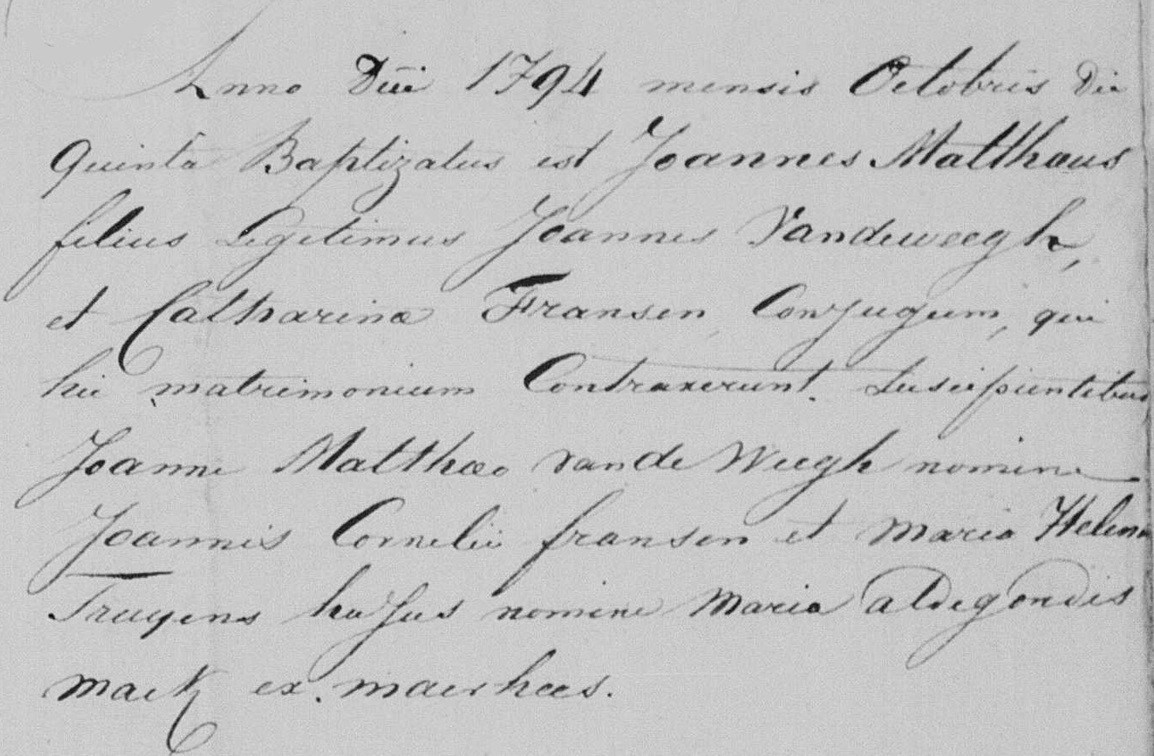 Anno Dni 1794 mensis Octobris Die
Quinta Baptizatus est Joannes Matthaus
filius Legitimus Joannes Vandeweegh,
et Catharinæ Fransen Conjugum, qui
hic matrimonium Contraxerunt. Suscipientibus
Joanne Matthæo Vande Weegh nomine
Joannis Cornelii fransen et Maria Helena
Truyens hujus nomine Maria aldegondis
mack ex. maerhees.